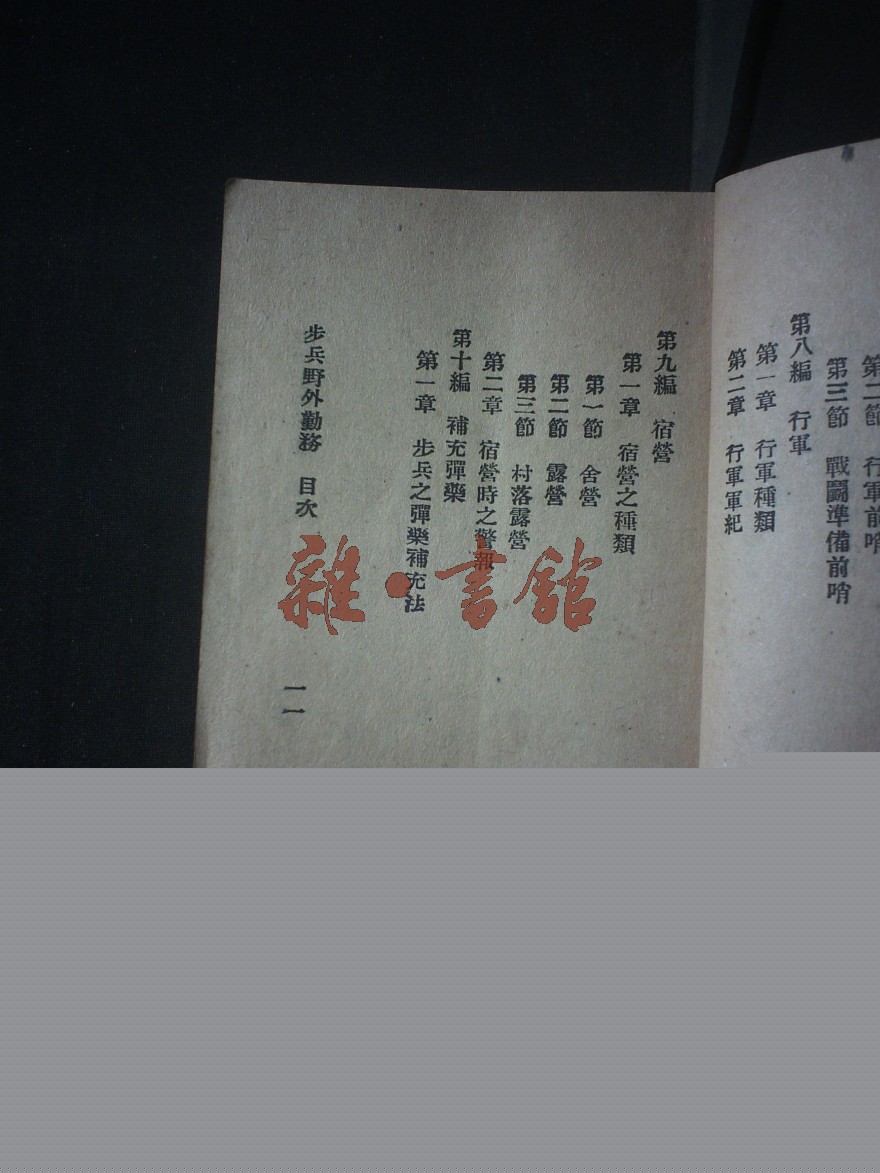 第二節 行軍前哨
第三節 戰鬪準備前哨
第八編 行軍
第一章 行軍種類
第二章 行軍軍紀
第九編 宿營
第一章 宿營之種類
第一節 舍營
第二節 露營
第三節 村落露營
第二章 宿營時之警報
第十編 補充彈藥
第一章 步兵之彈藥補充法
步兵野外勤務 目次
一一
雜·書館